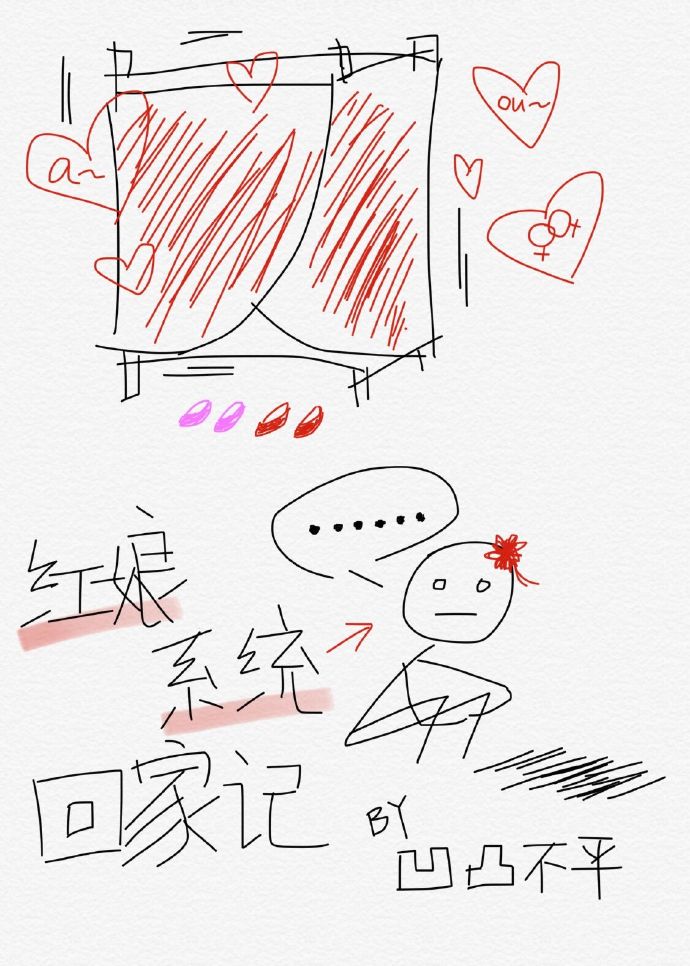 a~
ou~
......
红娘
系统
回家记
BY
凹凸不平